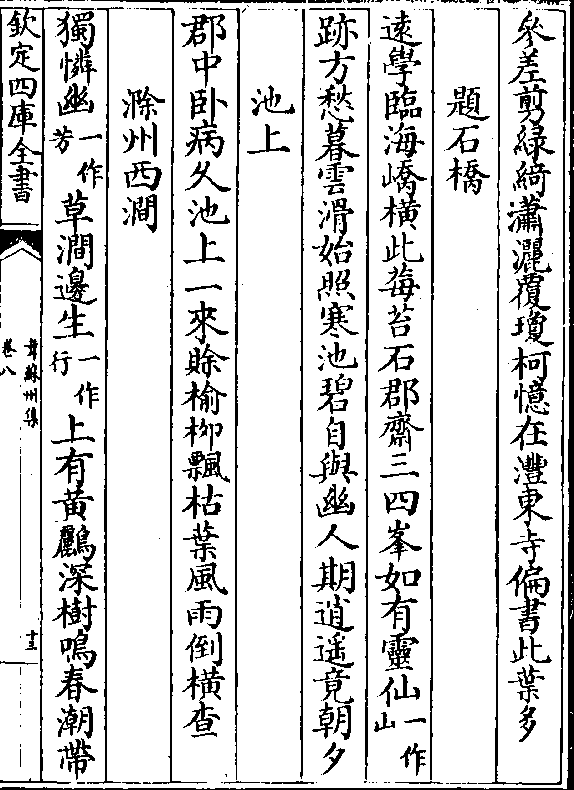 參差剪綠綺瀟灑覆瓊柯憶在灃東寺偏書此葉多
題石橋
遠學臨海嶠橫此莓苔石郡齋三四峯如有靈仙一作山
跡方愁暮雲滑始照寒池碧自與幽人期逍遥竟朝夕
池上
郡中卧病久池上一來賒榆栁飄枯葉風雨倒橫查
滁州西澗
獨憐幽一作芳草澗邊生一作行上有黄鸝深樹鳴春潮帶
欽定四庫全書
韋蘇州集
卷八
十三